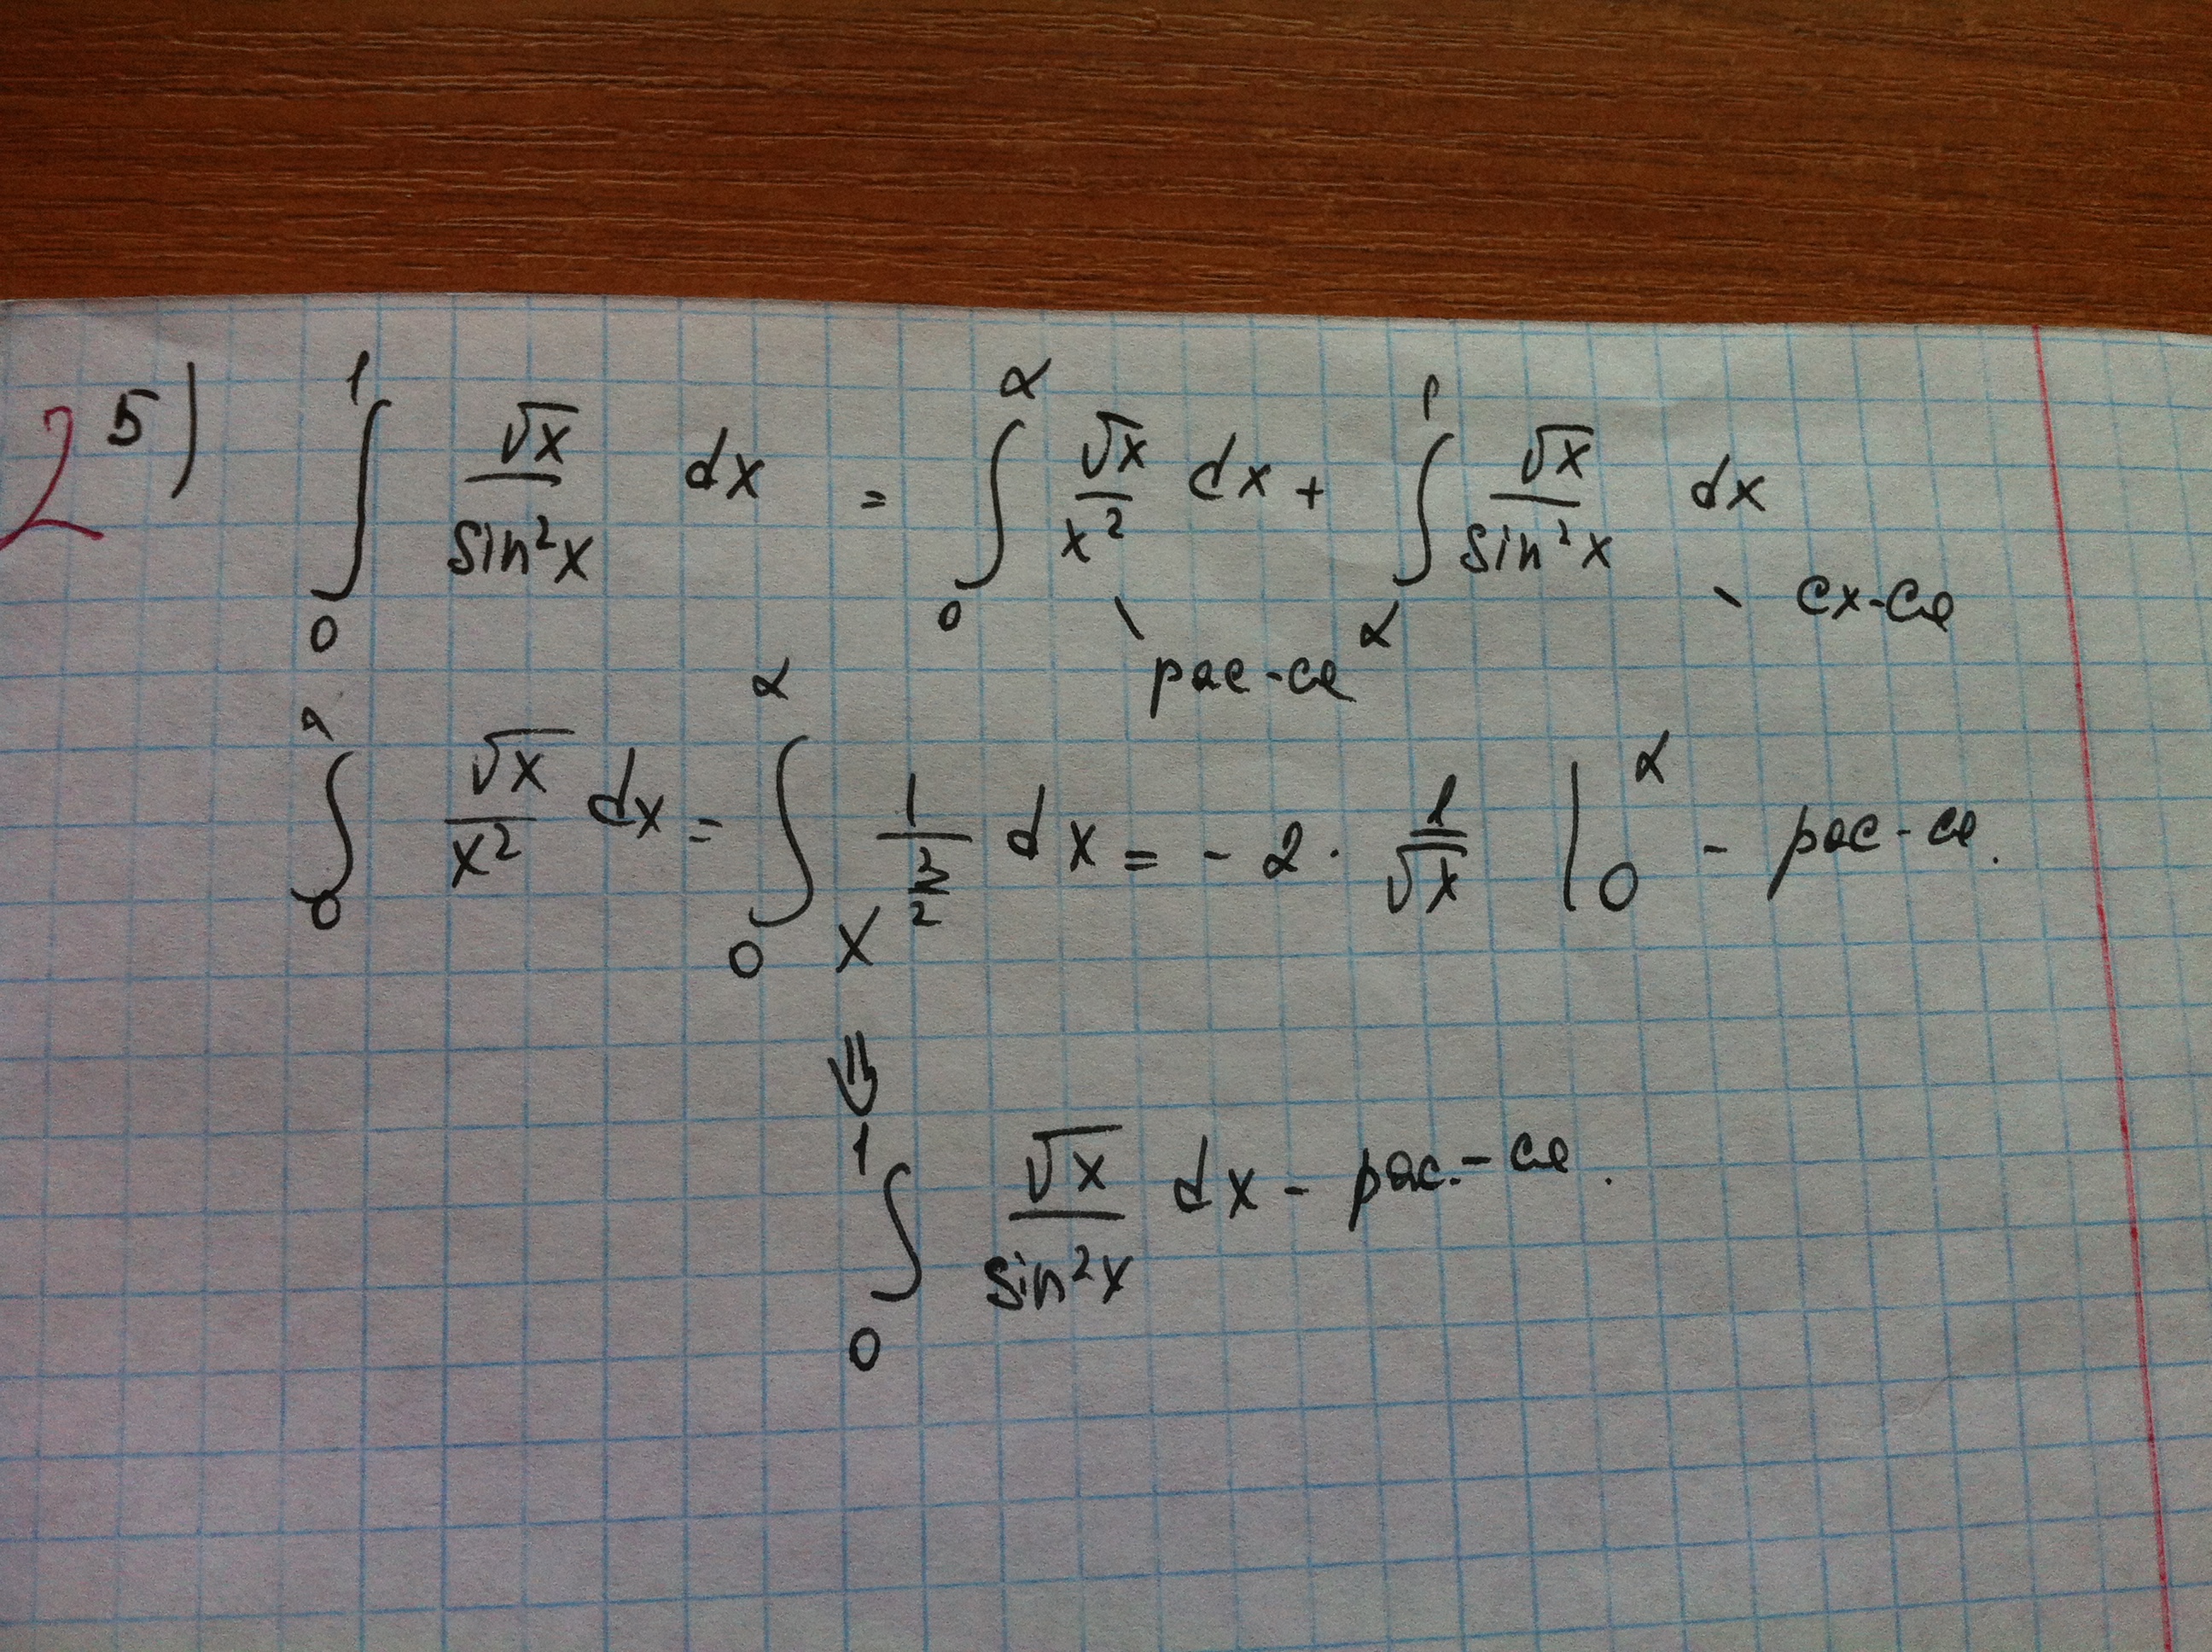 5) ∫₀¹ √x/sin²x dx = ∫₀^α √x/x² dx + ∫_α¹ √x/sin²x dx - сх-ся
расх-ся
∫₀^α √x/x² dx = ∫₀^α 1/x^(3/2) dx = -2 · 1/√x |₀^α - рас-ся.
⇓
∫₀¹ √x/sin²x dx - рас-ся.